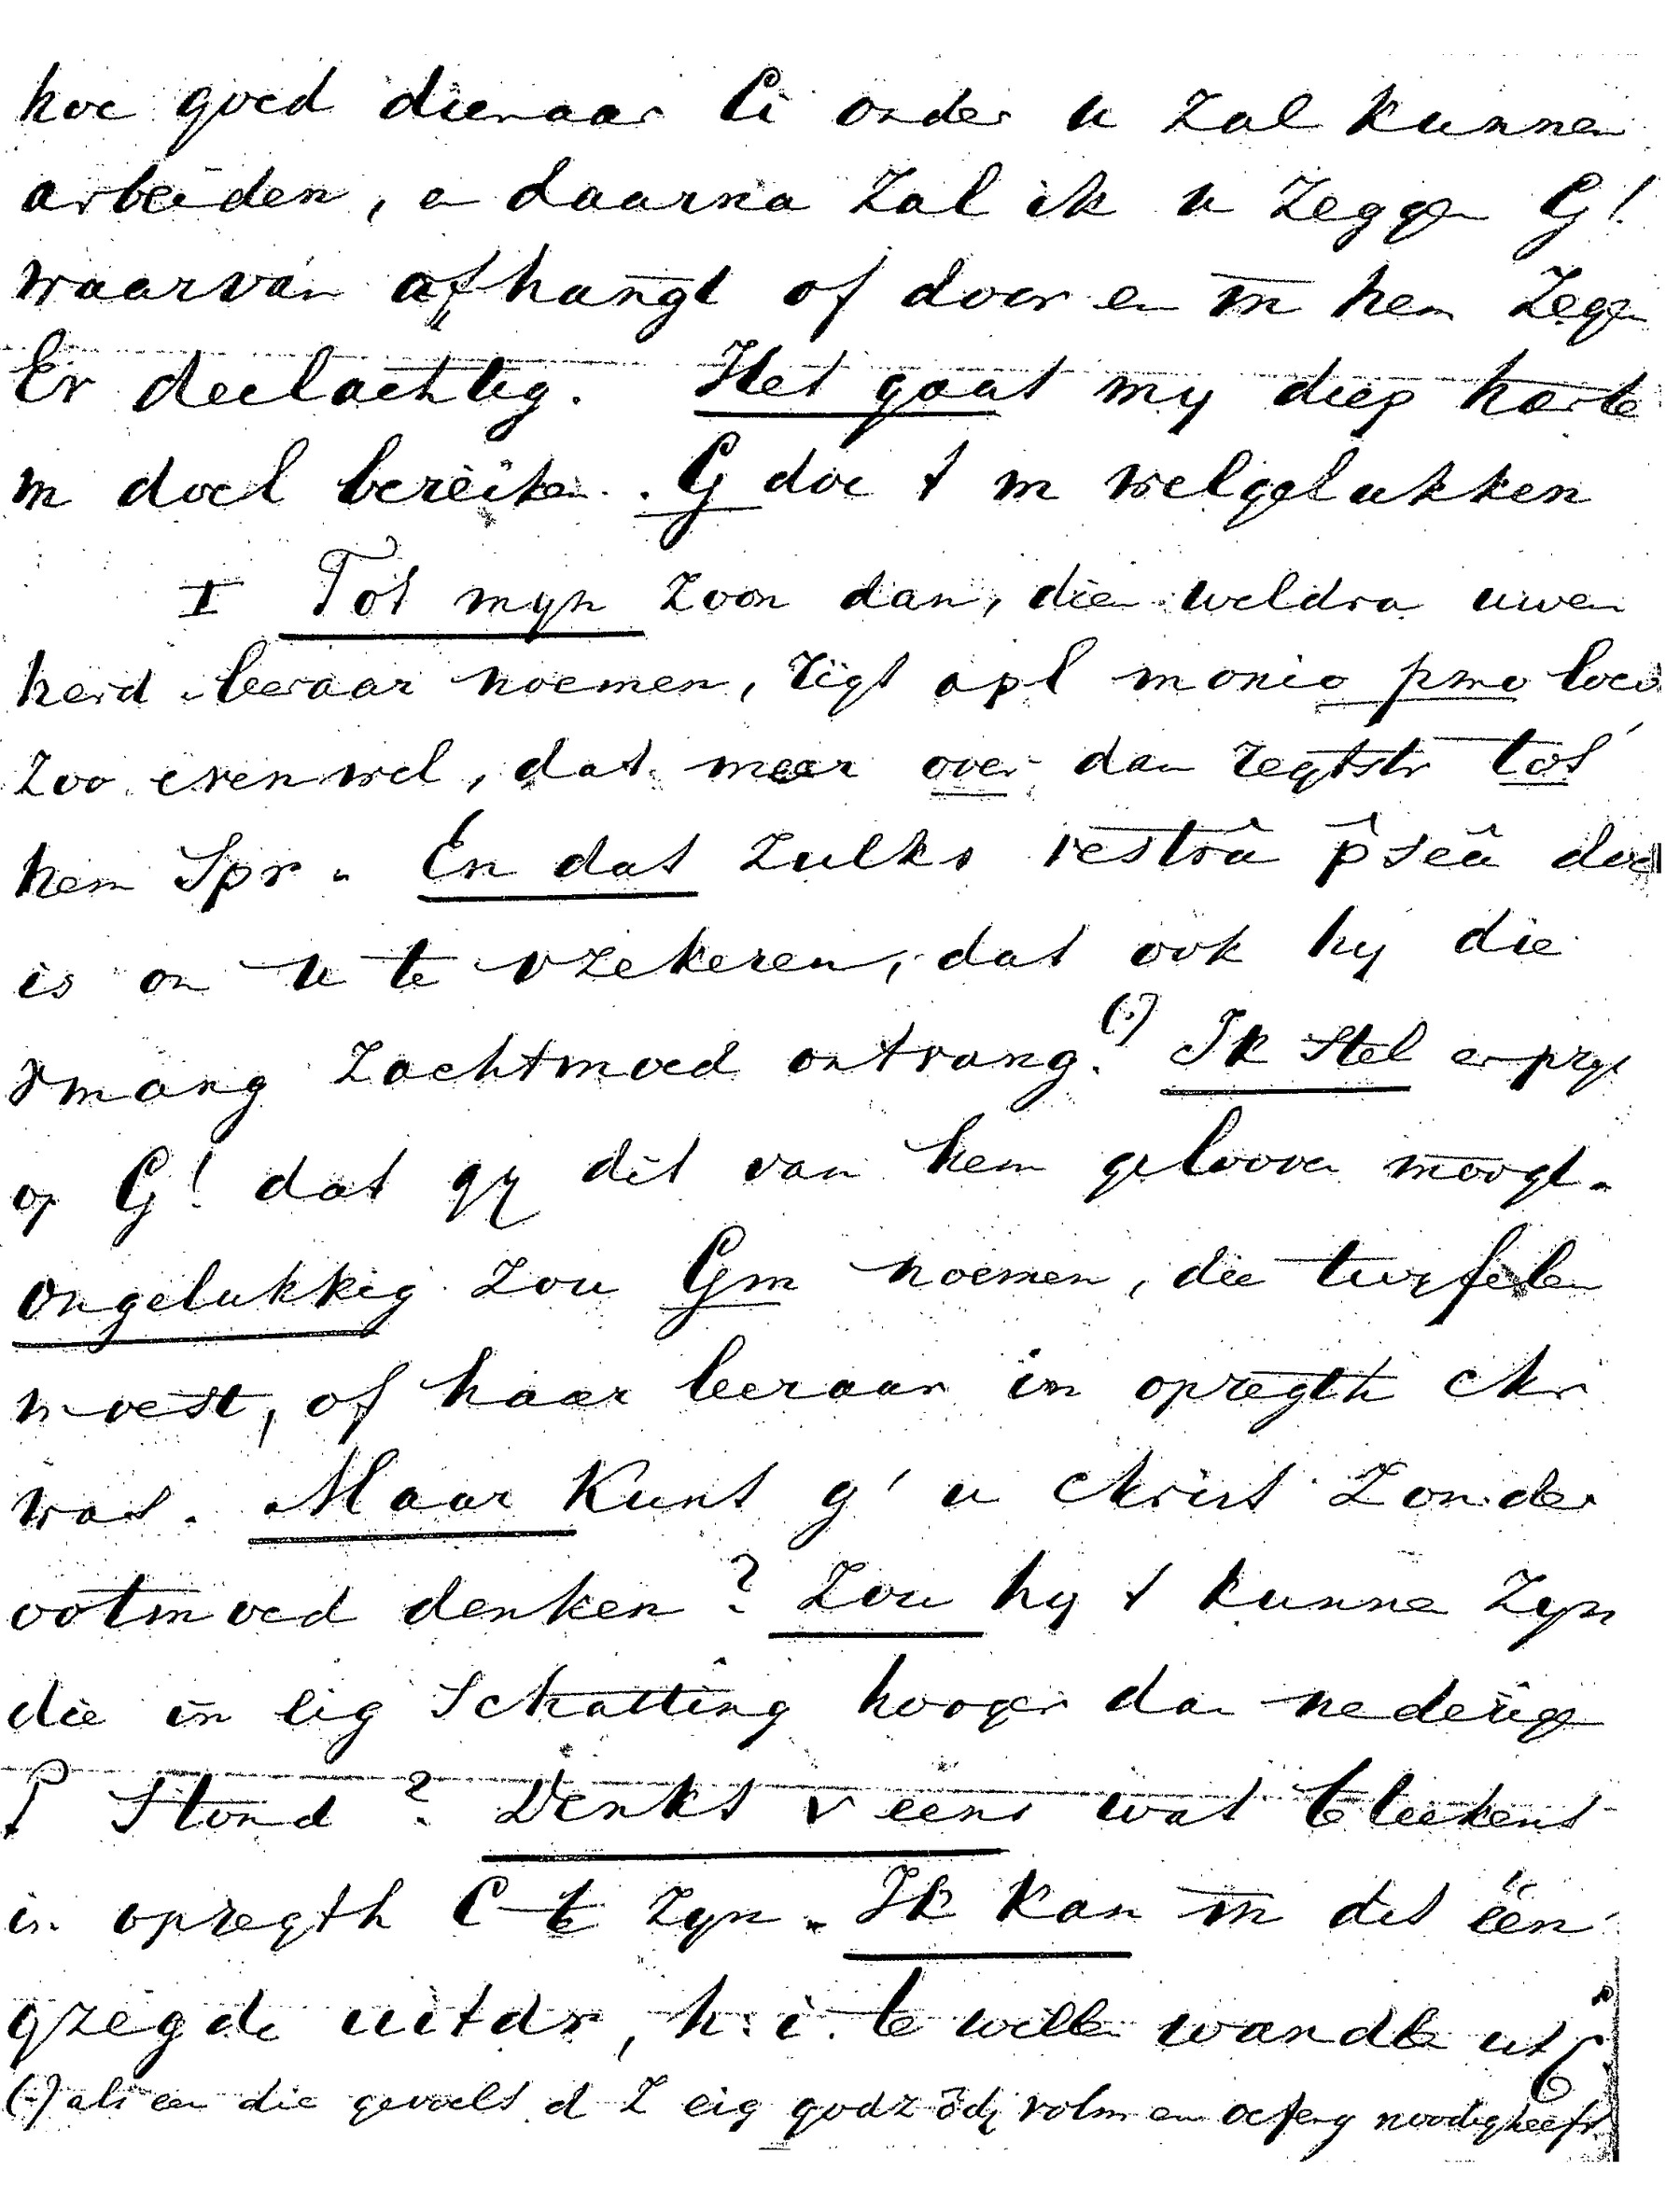 hoe goed dienaar Ci onder u zal kunnen
arbeiden, e daarna zal ik u zeggen G!
waarvan afhangt of door en in hem zegen
Er deelachtig. Het gaat my diep harte
m doel bereiken. G doe t m welgelukken
I Tot myn zoon dan, dien weldra uwen
herd leeraar noemen, rigt apl monio pmo loco
zoo evenwel, dat meer over dan regtstr tot
hem Spr. En dat zulks vestrâ p̂seâ doe
is om u te vzekeren, dat ook hy die
vmang zachtmoed ontvang. (:) Ik Stel e prys
op G! dat gy dit van hem gelooven moogt.
Ongelukkig zou Gm noemen, die twyfelen
moest, of haar leeraar in opregth chr
was. Maar kunt g' u christ zonder
ootmoed denken? Zou hy t kunnen zyn
die in eig Schatting hooger dan nederige
P Stond? Denkt v eens wat beteekent
in opregth C te zyn. Ik kan in dit één
gzegde uitdr, h. i. te willen wandle uit
(:) als een die gevoelt d Z eig godz ödj volm en oefeng noodig heeft